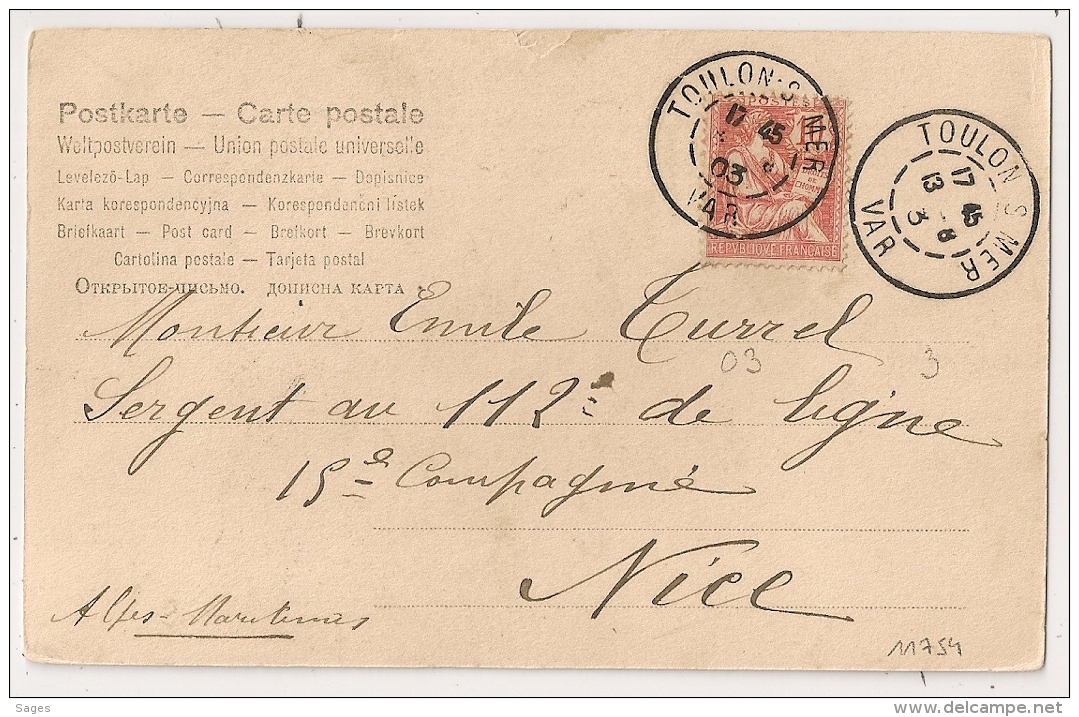 Postkarte — Carte postale
Weltpostverein — Union postale universelle
Levelező-Lap — Correspondenzkarte — Dopisnice
Karta korespondencyjna — Korespondenční lístek
Briefkaart — Post card — Brefkort — Brevkort
Cartolina postale — Tarjeta postal
Открытое-письмо. дописна карта.
TOULON-S-MER
17 45
03
VAR
POSTES
REPVBLIQVE FRANÇAISE
TOULON S MER
17 45
13 - 8
3
VAR
Monsieur Emile Turrel
03 3
Sergent au 112e de ligne
15e Compagnie
Nice
Alpes-Maritimes
11754
Sages
www.delcampe.net